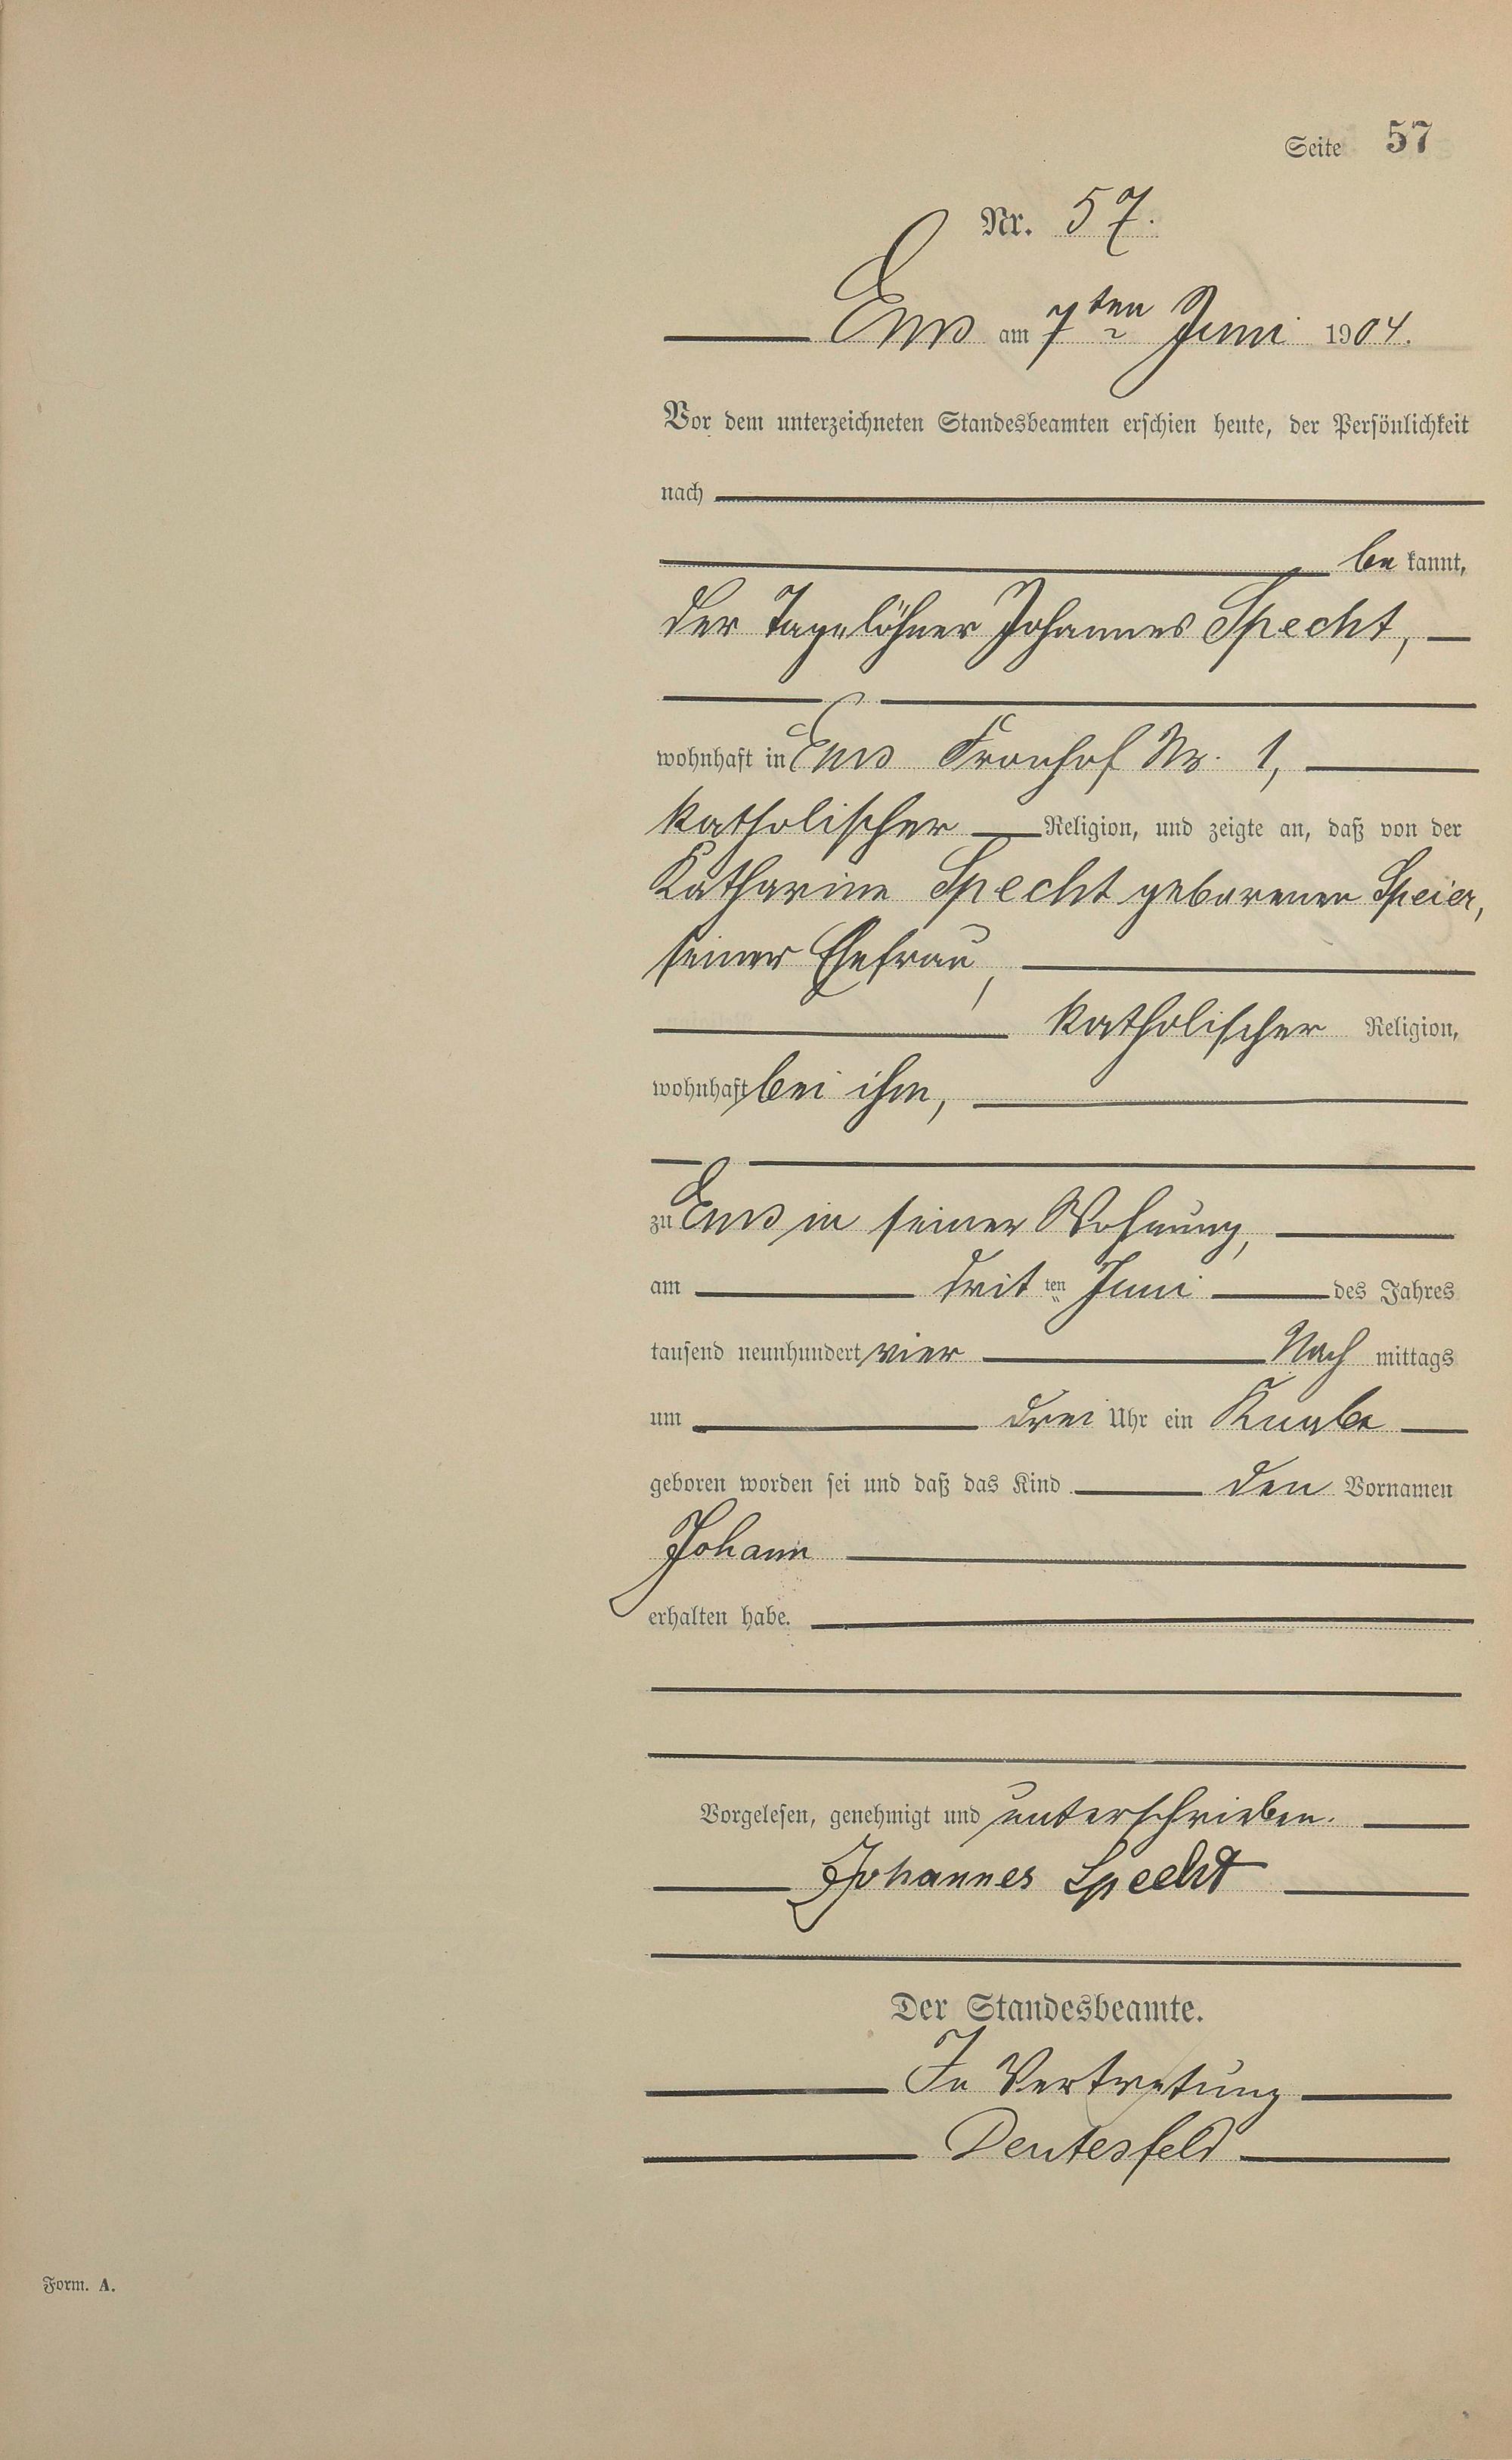 Seite 57
Nr. 57.
Ems am 7ten Juni 1904.
Vor dem unterzeichneten Standesbeamten erschien heute, der Persönlichkeit
nach
be kannt,
der Tagelöhner Johannes Specht,
wohnhaft in Ems Fronhof Nr. 1,
katholischer Religion, und zeigte an, daß von der
Katharine Specht geborenen Speier,
seiner Ehefrau,
katholischer Religion,
wohnhaft bei ihm,
zu Ems in seiner Wohnung,
am drit ten Juni des Jahres
tausend neunhundert vier Nach mittags
um drei Uhr ein Knabe
geboren worden sei und daß das Kind den Vornamen
Johann
erhalten habe.
Vorgelesen, genehmigt und unterschrieben.
Johannes Specht
Der Standesbeamte.
In Vertretung
Deutesfeld
Form. A.